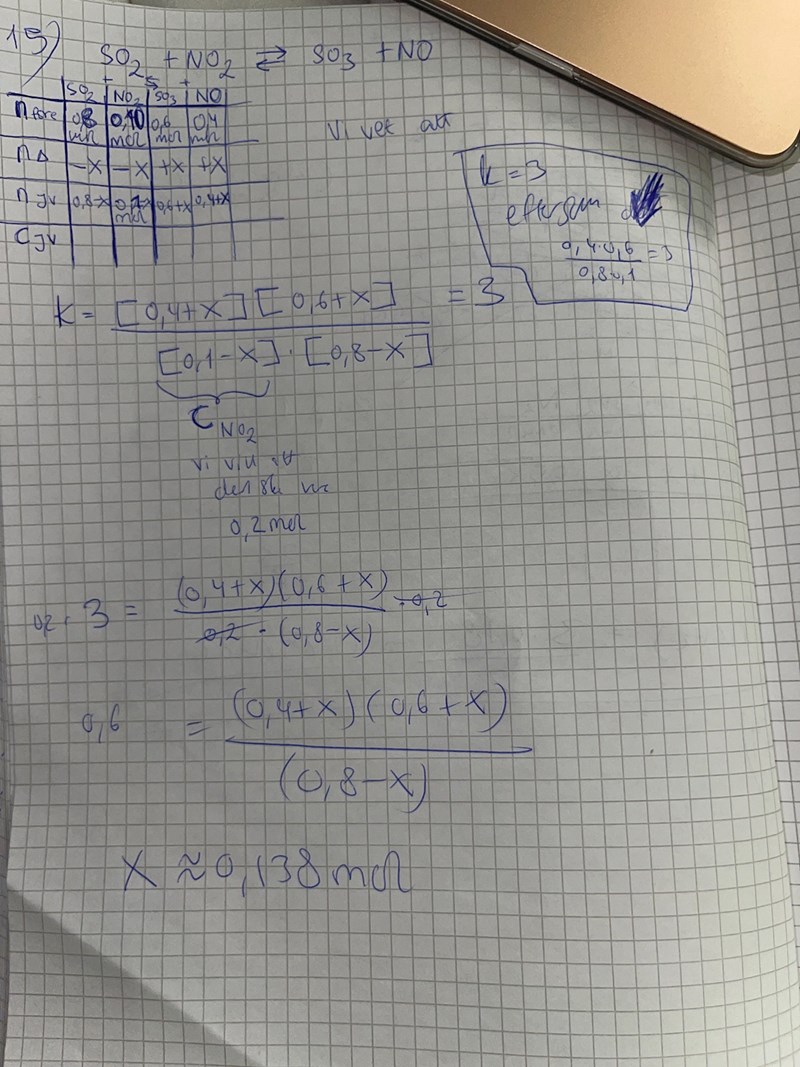 15)
SO2 + NO2 ⇄ SO3 + NO
SO2 + NO2 ⇆ SO3 + NO
n före 0,8 mol 0,10 mol 0,6 mol 0,4 mol
nΔ -x -x +x +x
n jv 0,8-x mol 0,6+x 0,4+x
C jv
Vi vet att
k = 3
eftersom
0,4·0,6 / 0,8·0,1 = 3
K = [0,4+x][0,6+x] / [0,1-x]·[0,8-x] = 3
C NO2
vi vill att
den ska va
0,2 mol
0,2 · 3 = (0,4+x)(0,6+x) / 0,2 · (0,8-x) ·0,2
0,6 = (0,4+x)(0,6+x) / (0,8-x)
x ≈ 0,138 mol